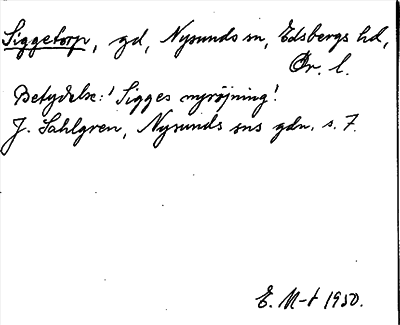 Siggetorp, gd, Nysunds sn, Edsbergs hd,
Ör. l.
Betydelse: 'Sigges nyröjning'.
J. Sahlgren, Nysunds sns gdn. s. 7.
E. M-t 1950.